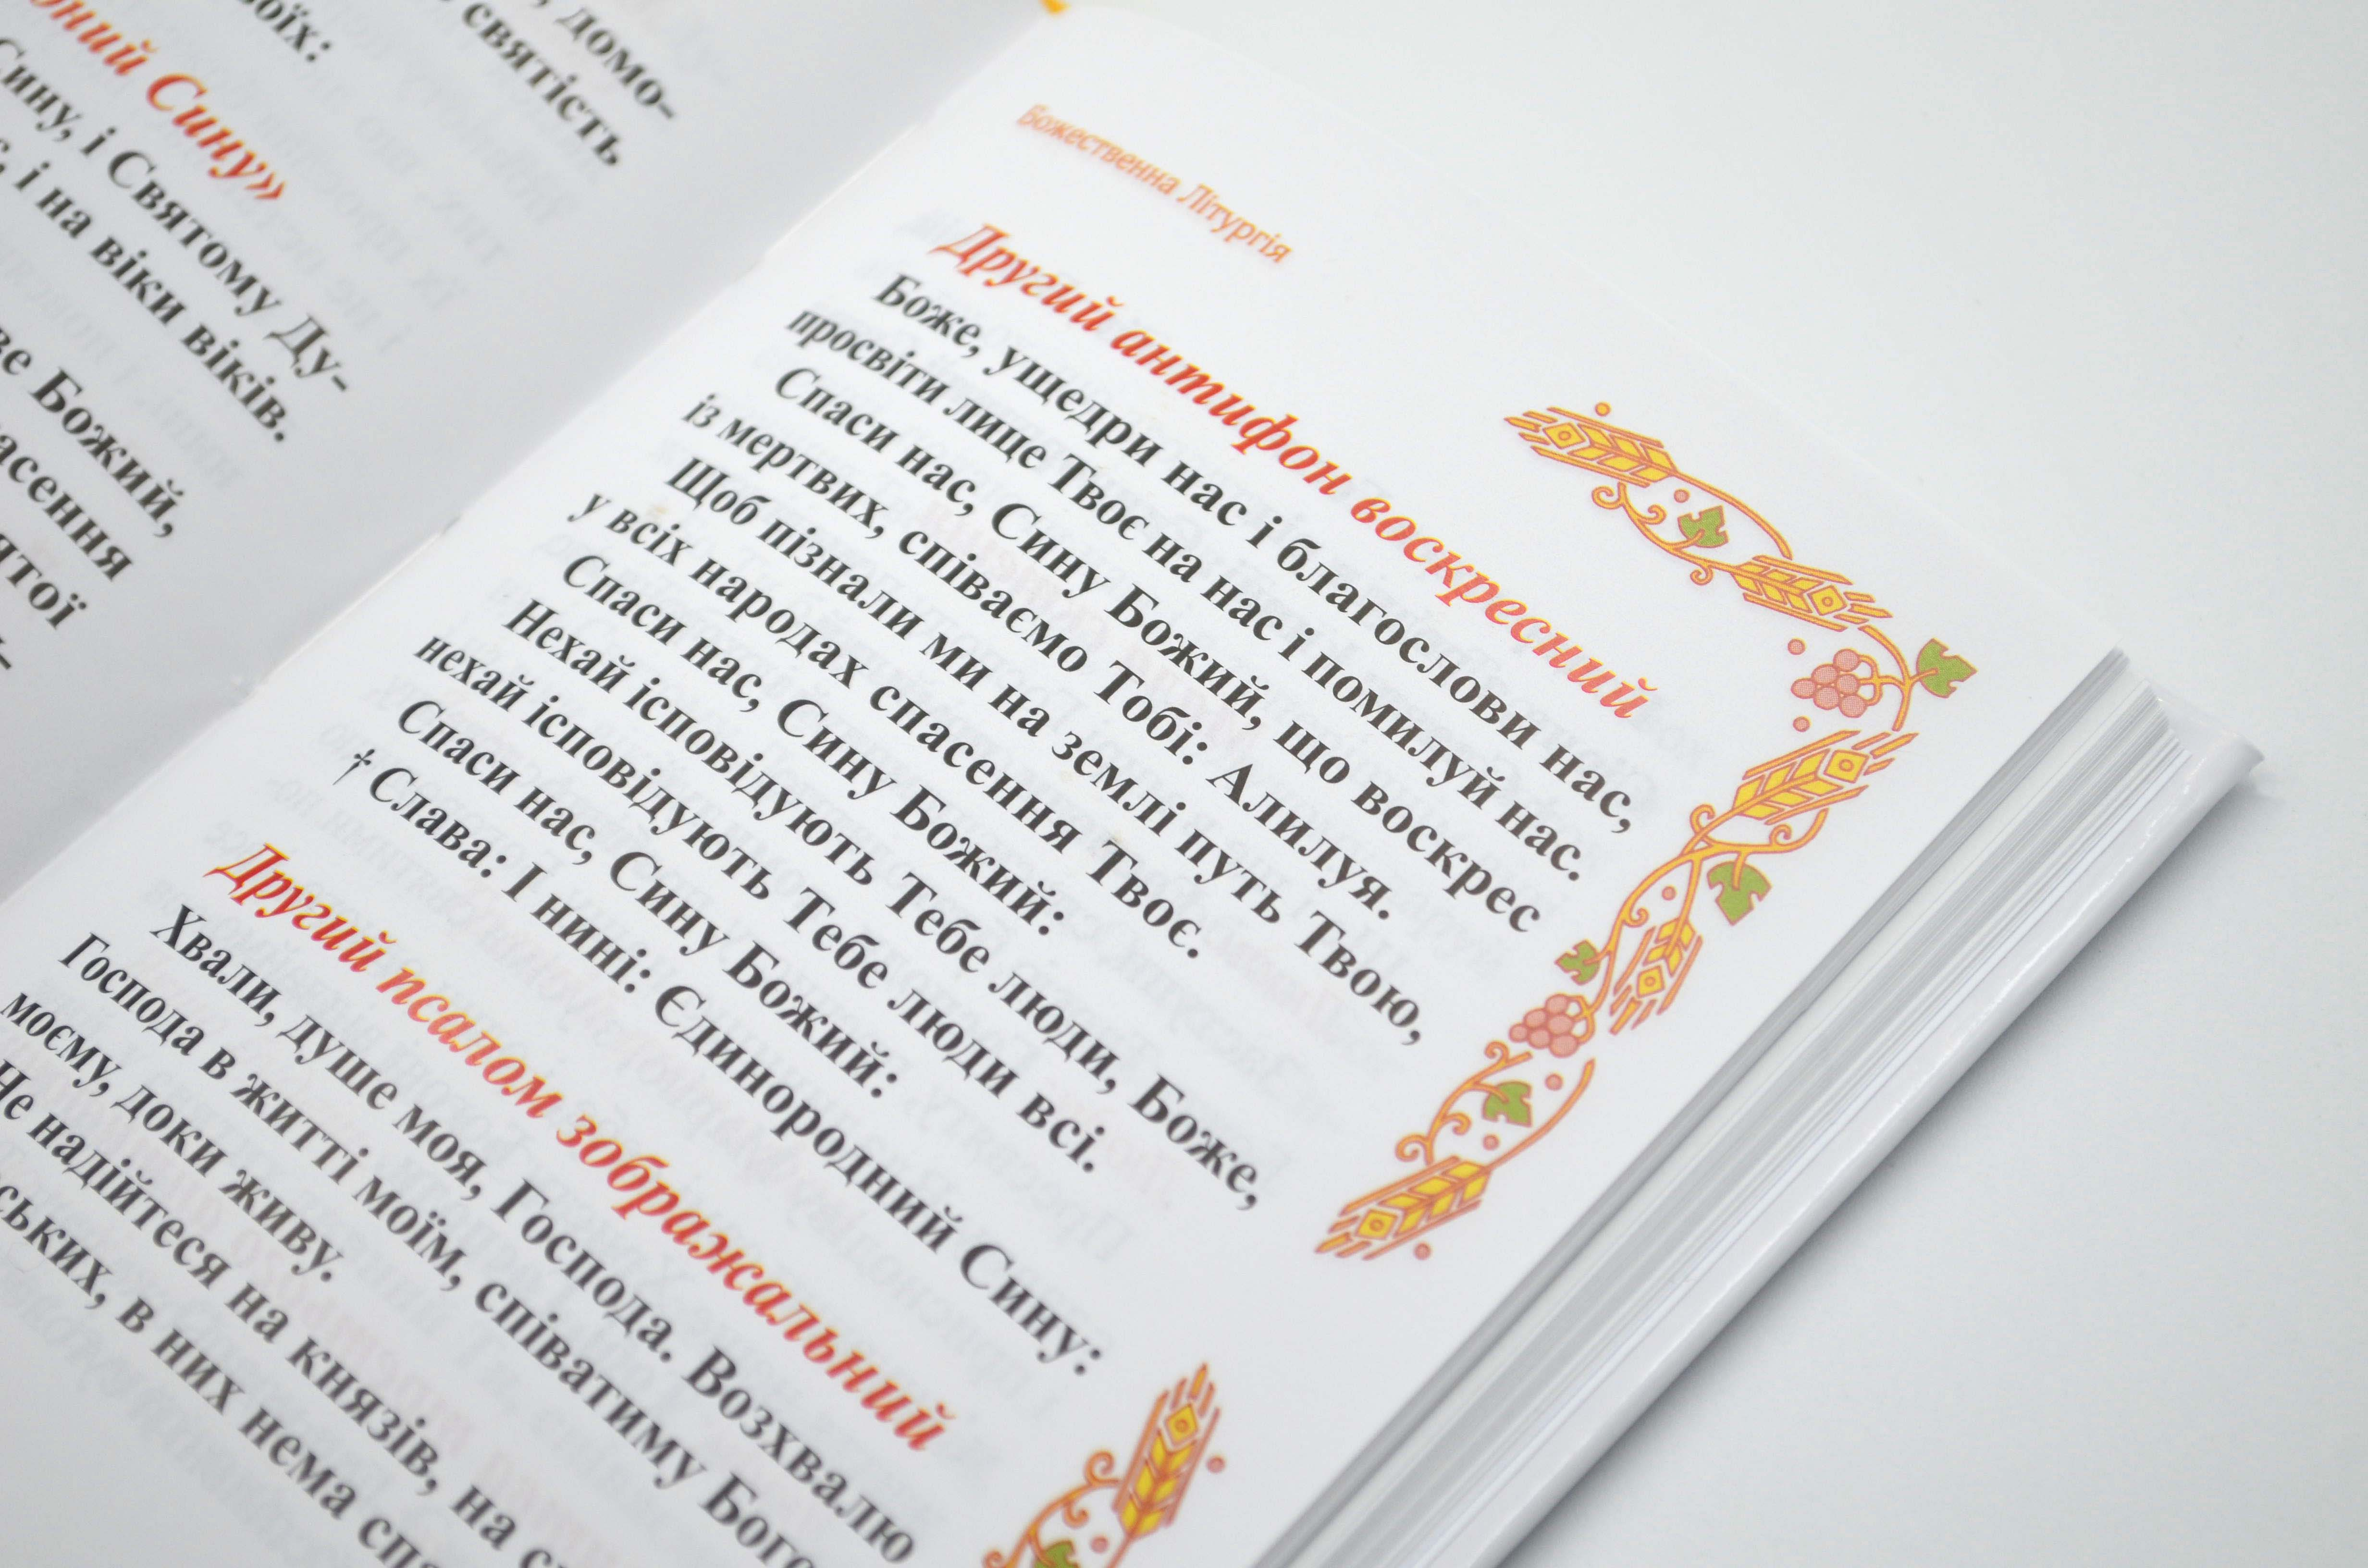 домо-
святість
воїх:
Сину»
Сину, і Святому Ду-
і на віки віків.
Божий,
Божественна Літургія
Другий антифон воскресний
Боже, ущедри нас і благослови нас,
просвіти лице Твоє на нас і помилуй нас.
Спаси нас, Сину Божий, що воскрес
із мертвих, співаємо Тобі: Алилуя.
Щоб пізнали ми на землі путь Твою,
у всіх народах спасення Твоє.
Спаси нас, Сину Божий:
Нехай ісповідують Тебе люди, Боже,
нехай ісповідують Тебе люди всі.
Спаси нас, Сину Божий:
† Слава: І нині: Єдинородний Сину:
Другий псалом зображальний
Хвали, душе моя, Господа. Возхвалю
Господа в житті моїм, співатиму Бого
моєму, доки живу.
Не надійтеся на князів, на с
ських, в них нема спа